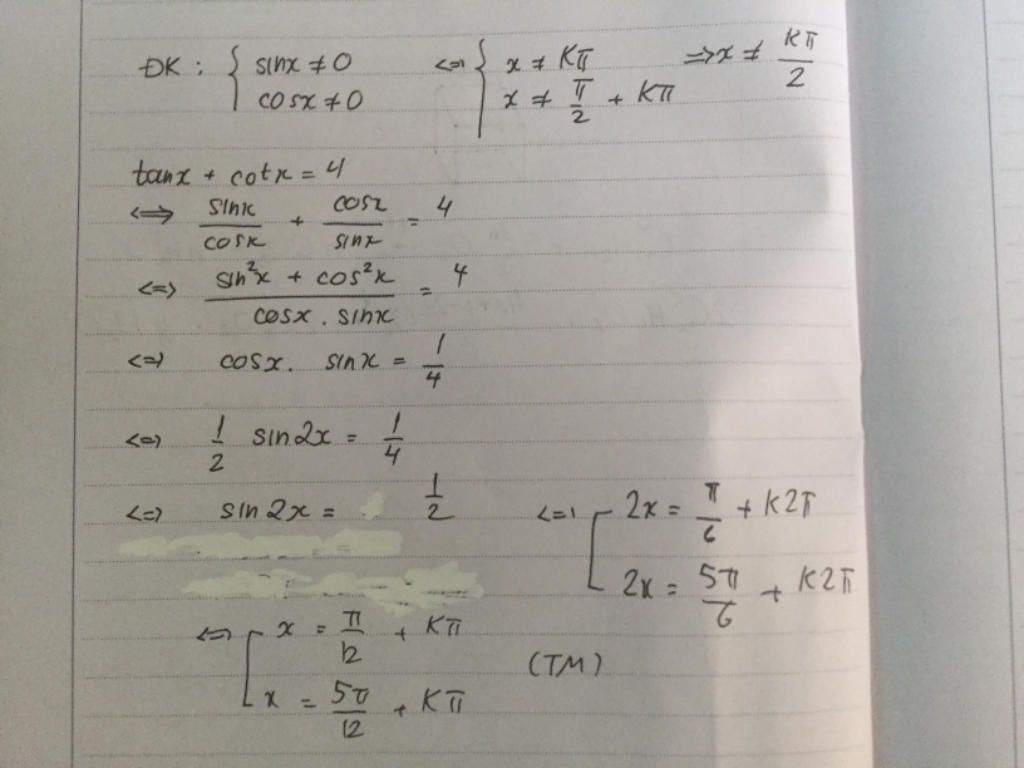 ĐK : { sinx ≠ 0 <=> { x ≠ Kπ => x ≠ Kπ/2
cosx ≠ 0 x ≠ π/2 + Kπ
tanx + cotx = 4
<=> sinx/cosx + cosx/sinx = 4
<=> (sin²x + cos²x)/(cosx . sinx) = 4
<=> cosx . sinx = 1/4
<=> 1/2 sin2x = 1/4
<=> sin2x = 1/2 <=> [ 2x = π/6 + K2π
2x = 5π/6 + K2π
<=> [ x = π/12 + Kπ
x = 5π/12 + Kπ (TM)